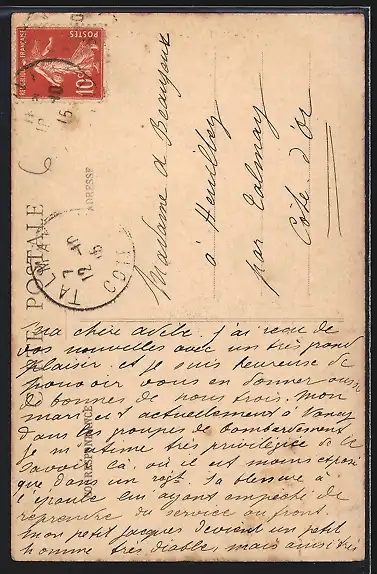 REPUBLIQUE FRANÇAISE
POSTES
10c
CARTE POSTALE
ADRESSE
TALMAY
7-10
12 15
COTE
6
Madame A Beaujeux
à Heuilley
par Talmay
Côte d'Or
CORRESPONDANCE
Ma chère Adèle. J'ai reçu de
vos nouvelles avec un très grand
plaisir. et je suis heureuse de
pouvoir vous en donner aussi
de bonnes de nous trois. Mon
mari est actuellement à Nancy
dans les groupes de bombardement
je m'estime très privilégiée de le
savoir là, où il est moins exposé
que dans un régt. Sa blessure à
l'épaule lui ayant empêché de
reprendre du service au front.
Mon petit Jacques devient un petit
homme très diable, mais aussi très